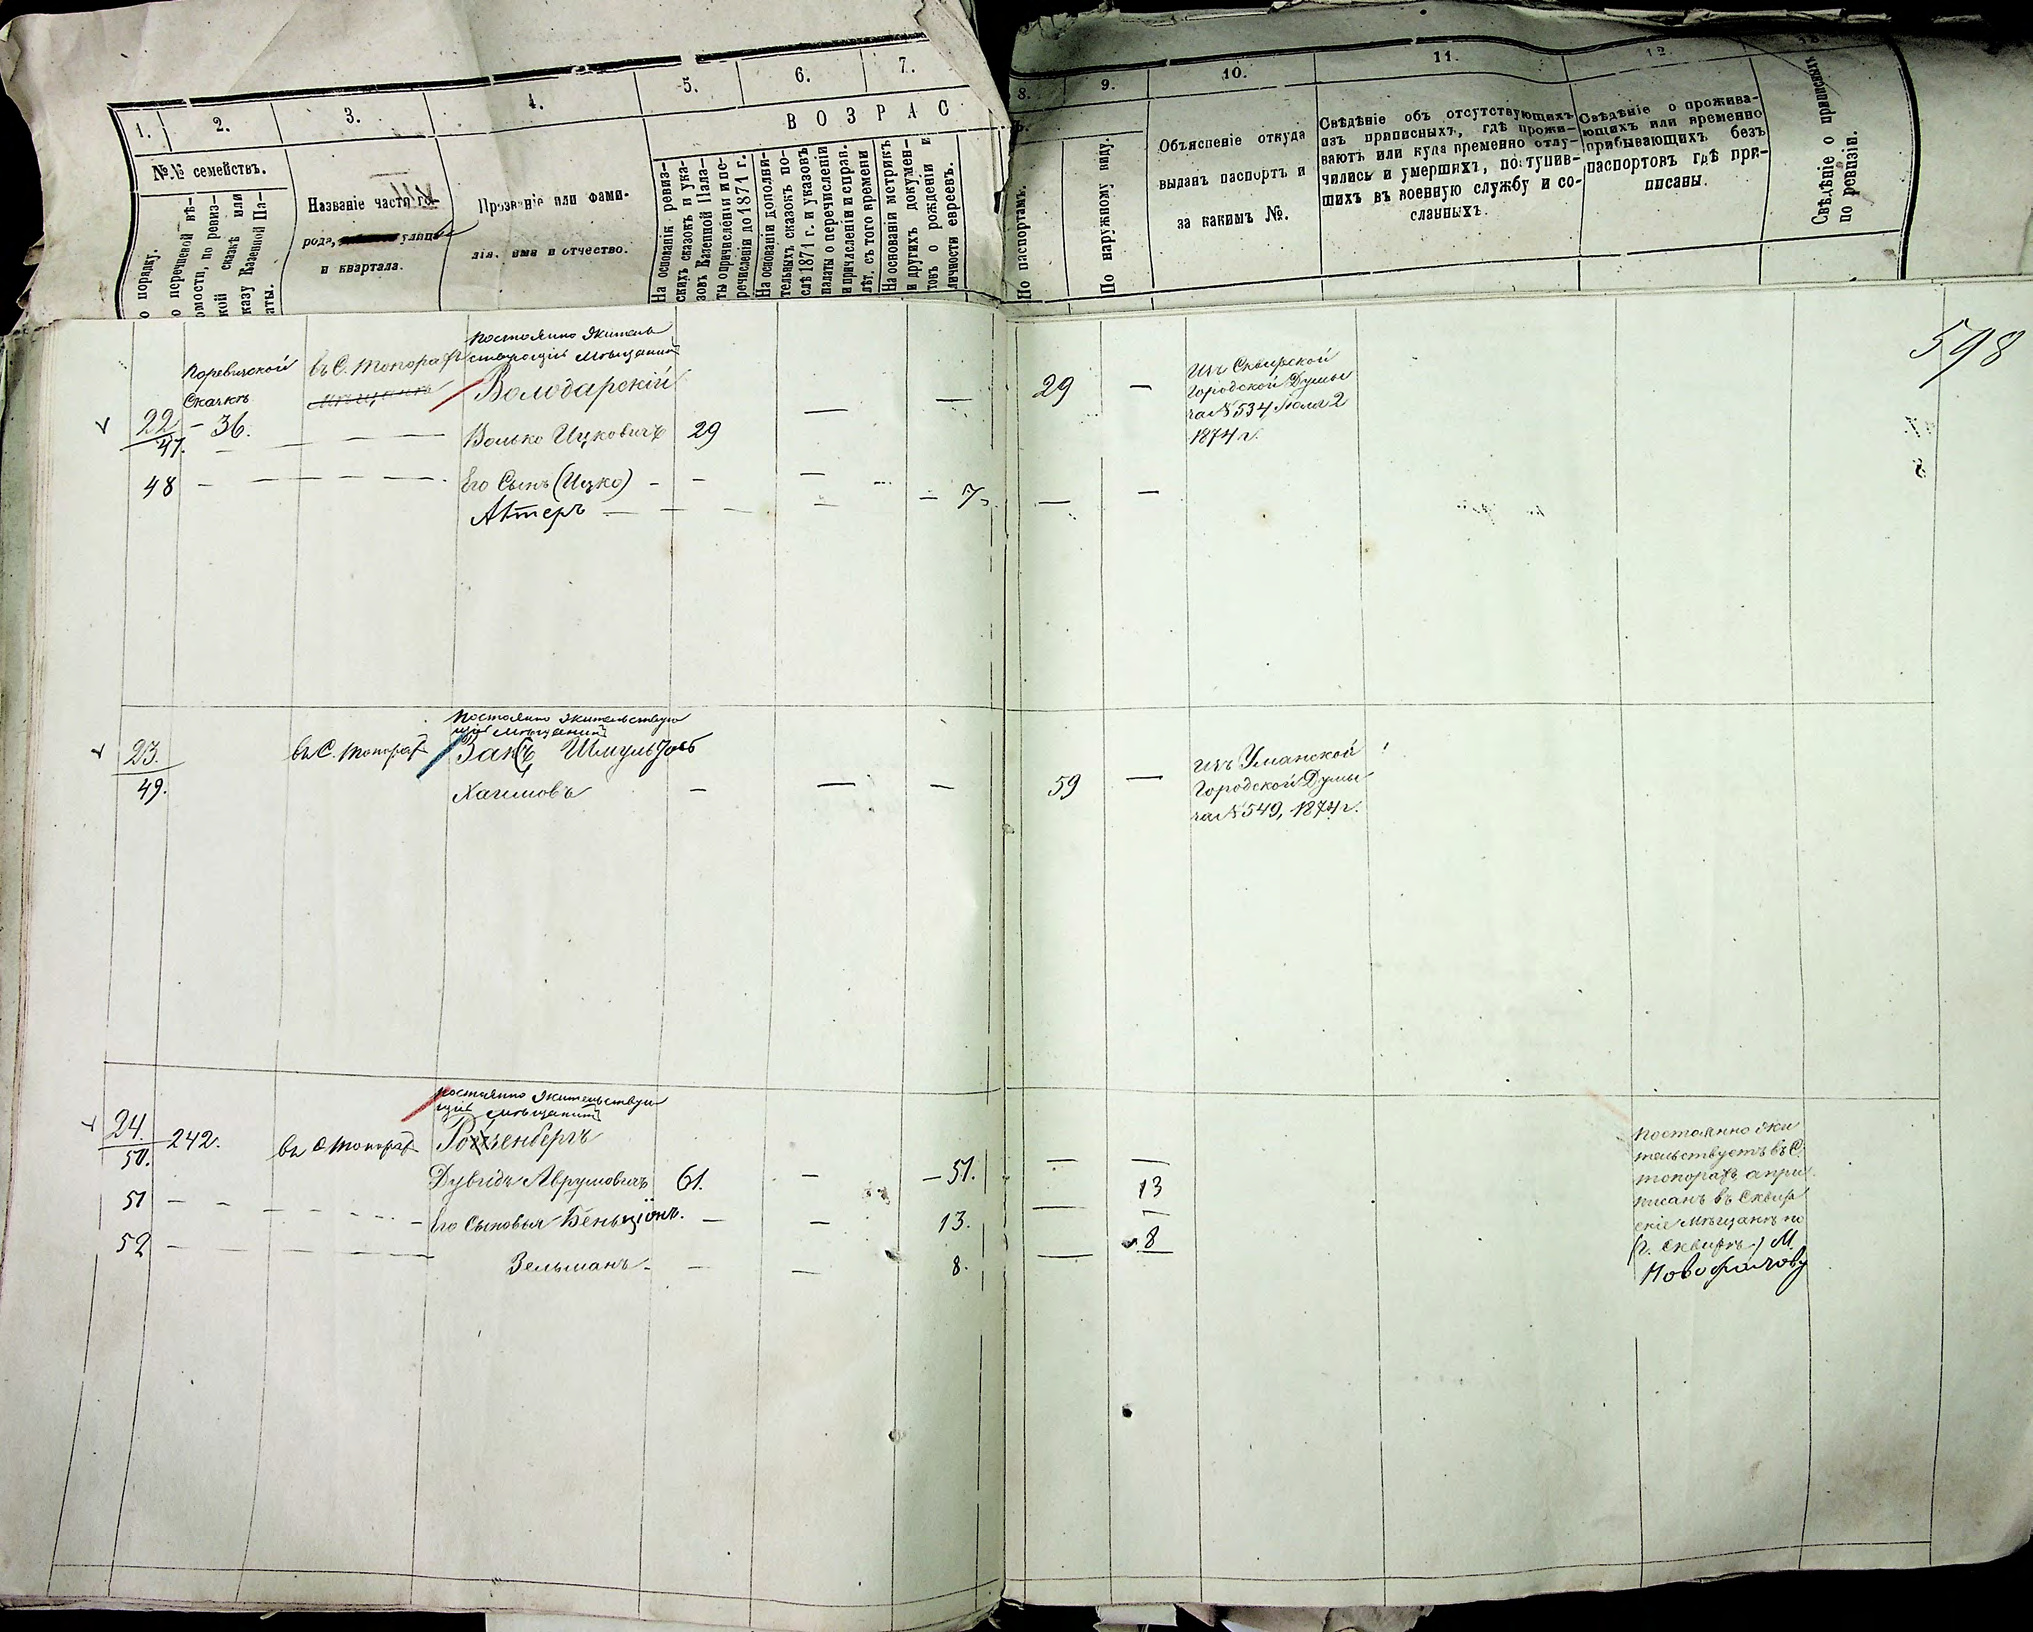 1.
2.
3.
4.
5.
6.
7.
8.
9.
10.
11.
12.
ВОЗРАС
№№ семействъ.
о порядку.
о перечневой вѣ-
омости, по ревиз-
кой сказкѣ или
казу Казенной Па-
аты.
Названіе части го-
рода, улицы
и квартала.
Прозваніе или фами-
лія, имя и отчество.
На основаніи ревиз-
скихъ сказокъ и ука-
зовъ Казенной Пала-
ты о причисленіи и пе-
речисленіи до 1871 г.
На основаніи дополни-
тельныхъ сказокъ по-
слѣ 1871 г. и указовъ
палаты о перечисленіи
и причисленіи и справ.
лѣт. съ того времени
На основаніи метрикъ
и другихъ докумен-
товъ о рожденіи и
личности евреевъ.
По паспортамъ.
По наружному виду.
Объясненіе откуда
выданъ паспортъ и
за какимъ №.
Свѣдѣніе объ отсутствующихъ
изъ приписныхъ, гдѣ прожи-
ваютъ или куда временно отлу-
чились и умершихъ, поступив-
шихъ въ военную службу и со-
сланныхъ.
Свѣдѣніе о прожива-
ющихъ или временно
прибывающихъ безъ
паспортовъ гдѣ при-
писаны.
Свѣдѣніе о приписныхъ
по ревизіи.
598
постоянно житель
ствующіе мѣщанинъ
въ С. Топорахъ
Сказкѣ
Володарскій
22 – 36.
47.
Волько Ицковичъ 29
29 —
Изъ Сквирской
Городской Думы
за № 534 Іюля 2
1874 г.
48
Его Сынъ (Ицко)
7
постоянно жительствую
щій мѣщанинъ
23.
въ С. Топорахъ
Закъ Шмуль
49.
Хаимовъ
59
Изъ Уманской
Городской Думы
за № 549, 1874 г.
постоянно жительствую
щій мѣщанинъ
24. 242.
въ С Топорахъ
50.
Дувидъ Аврумовичъ 61. — 51.
51
Его Сыновья Беньціонъ. 13. 13
52
Зельманъ 8. 8
постоянно жи
тельствуетъ въ С.
топорахъ а при
писанъ въ Сквир
скіе мѣщане по
(г. Сквирѣ) М.